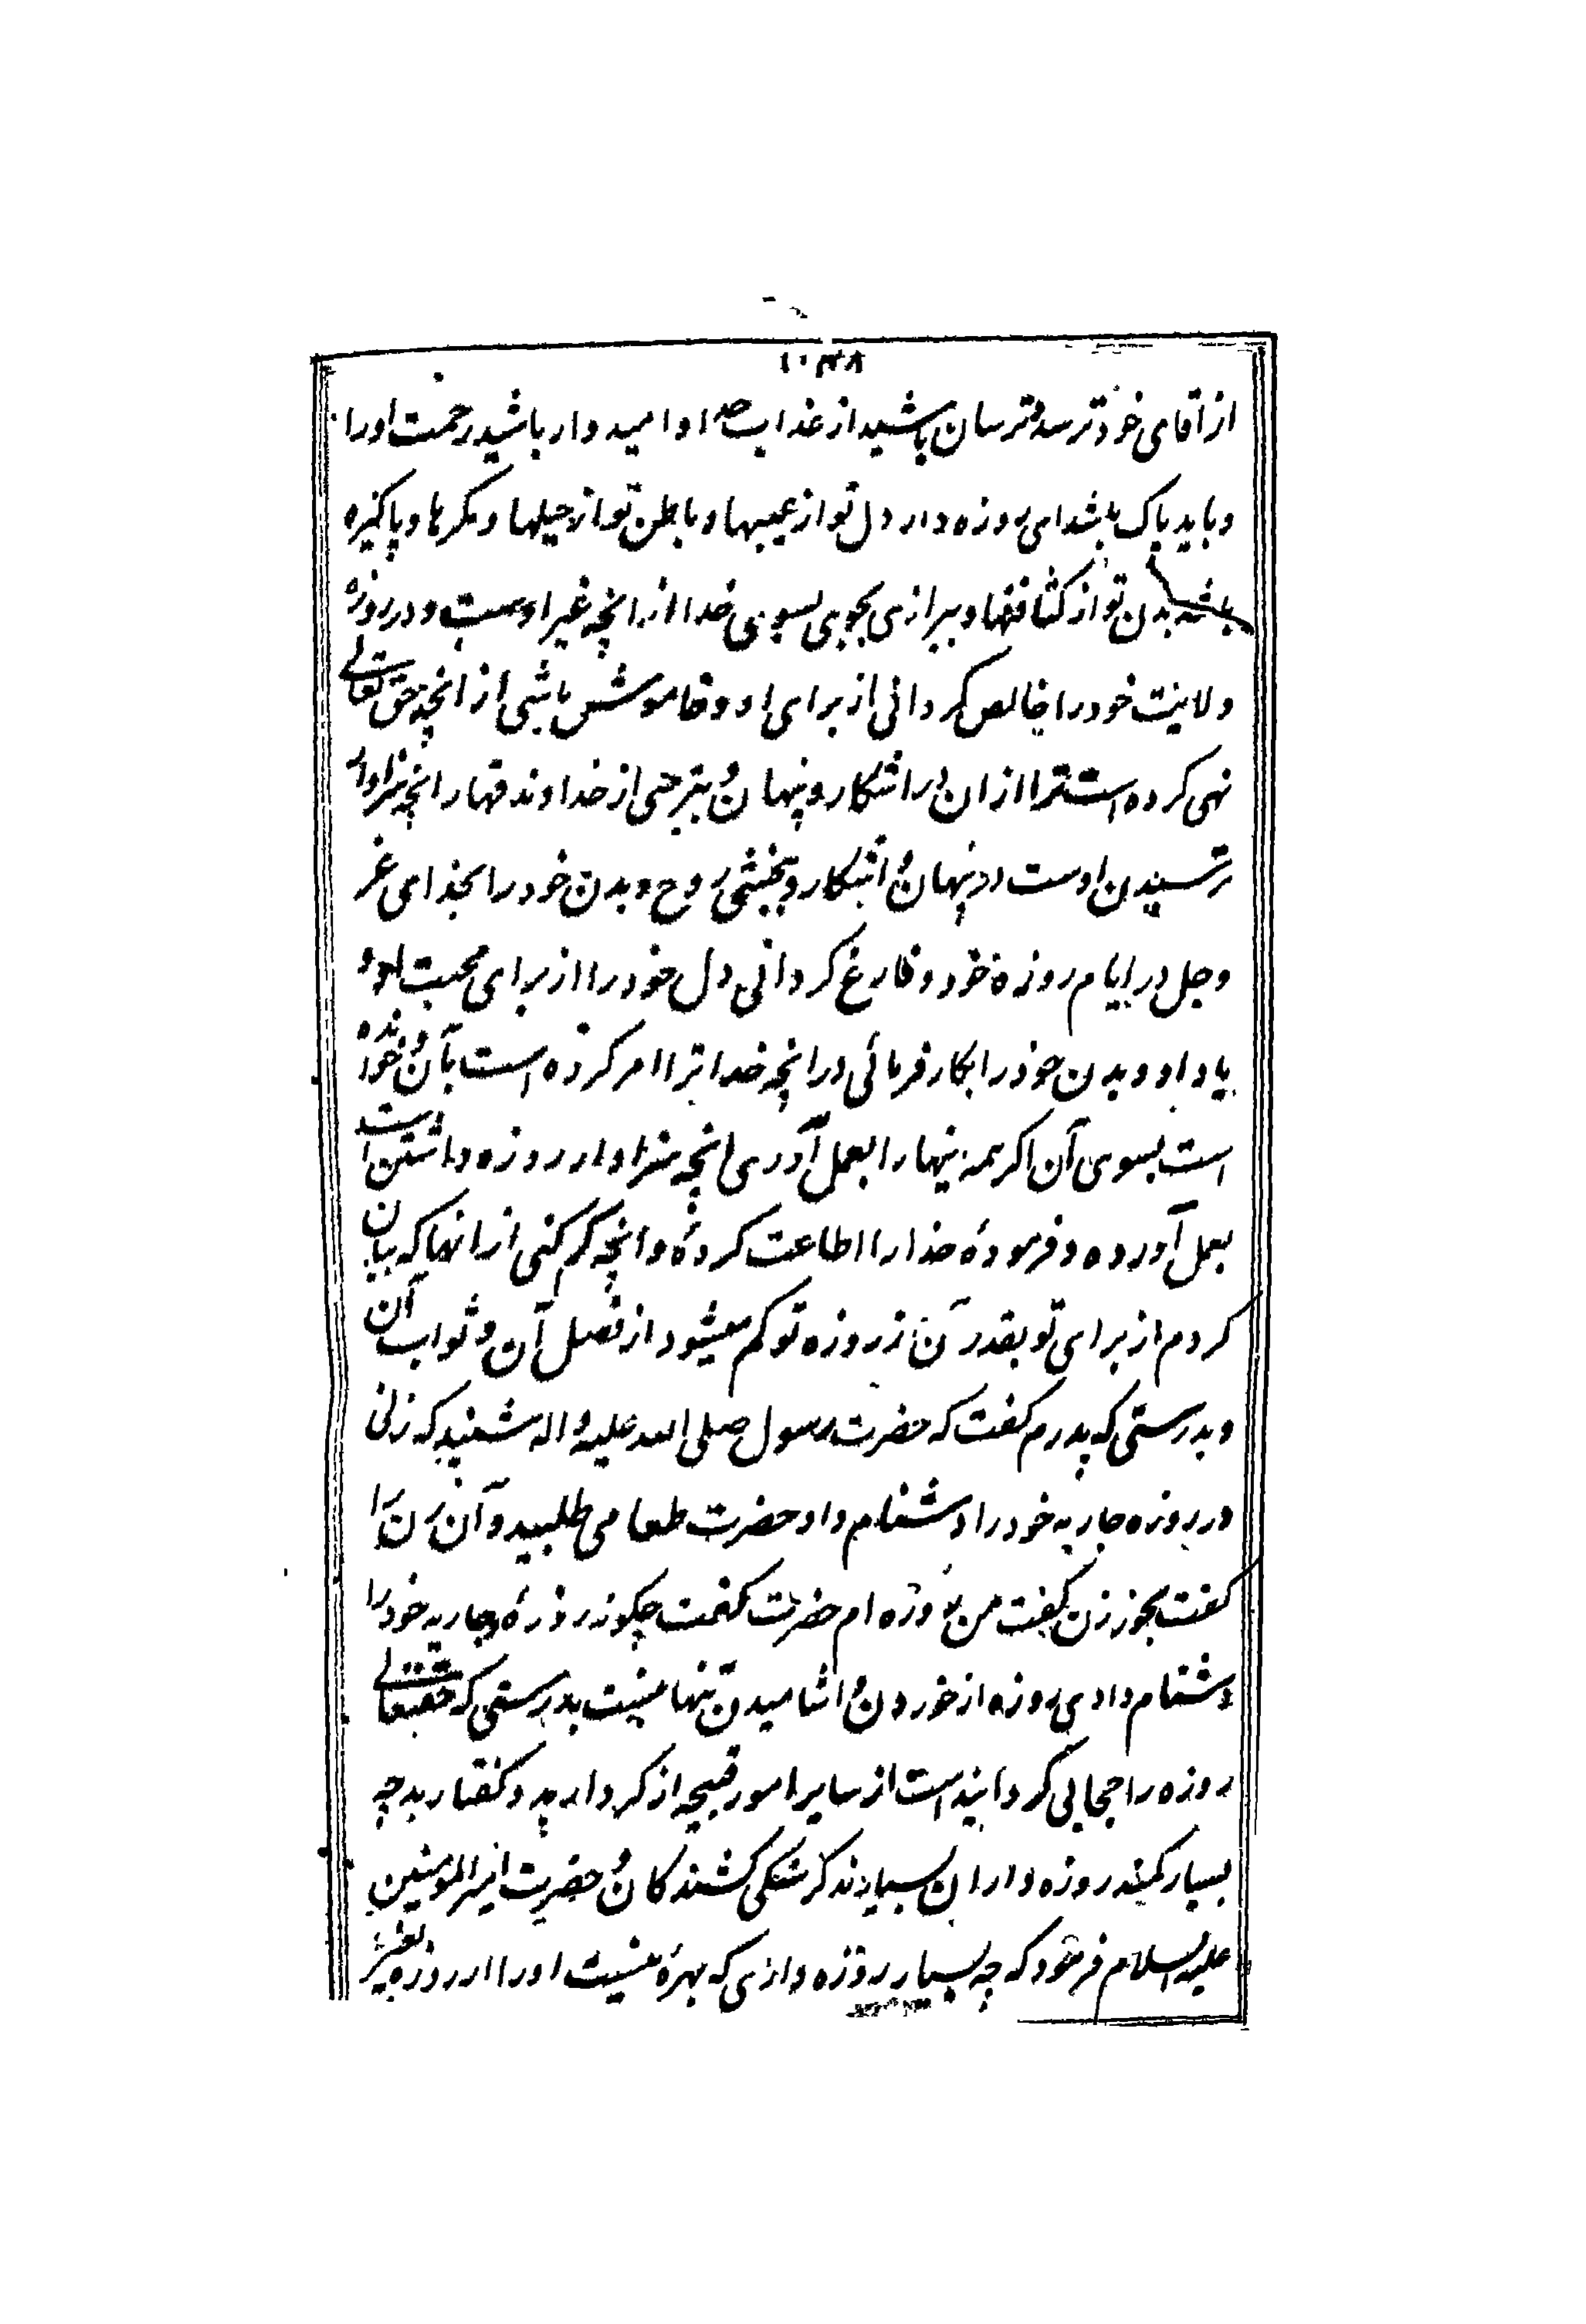 ۱۰۳۸
از اقای خود ترسد و ترسان باشید از عذاب او امیدوار باشید رحمت او را
و باید پاک باشد ای روزه دار دل تو از عیبها و باطن تو از حیلها و مکرها و پاکیزه
باشد بدن تو از کثافتها و بیزاری بجوی بسوی خدا از انچه غیر اوست و در روزه
ولایت خود را خالص کردانی از برای او و خاموش باشی از انچه حق تعالی
نهی کرده است ترا از ان در اشکار و پنهان و بترسی از خداوند قهار انچه سزاوار
ترسیدن اوست در پنهان و اشکار و بخشی روح و بدن خود را بخدای عز
و جل در ایام روزه خود و فارغ کردانی دل خود را از برای محبت او و
یاد او و بدن خود را بکار فرمائی در انچه خدا ترا امر کرده است بآن و خوانده
است بسوی آن اکر همه اینها را بعمل آوری انچه سزاوار روزه داشتن است
بعمل آورده و فرموده خدا را اطاعت کرده و انچه کم کنی از انها که بیان
کردم از برای تو بقدر آن از روزه تو کم میشود از فضل آن و ثواب آن
و بدرستی که پدرم کفت که حضرت رسول صلی الله علیه و اله شنید که زنی
در روزه جاریه خود را دشنام داد حضرت طعامی طلبید و آن زن را
کفت بخور زن کفت من روزه ام حضرت کفت چکونه روزه و جاریه خود را
دشنام دادی روزه از خوردن و اشامیدن تنها نیست بدرستی که حقتعالی
روزه را حجابی کردانیده است از سایر امور قبیحه از کردار بد و کفتار بد چه
بسیار کمند روزه داران بسیارند کرسنکی کشندکان و حضرت امیرالمومنین
علیه السلام فرمود که چه بسیار روزه داری که بهره نیست او را از روزه بغیر